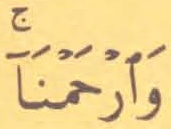 وَٱرْحَمْنَآۚ